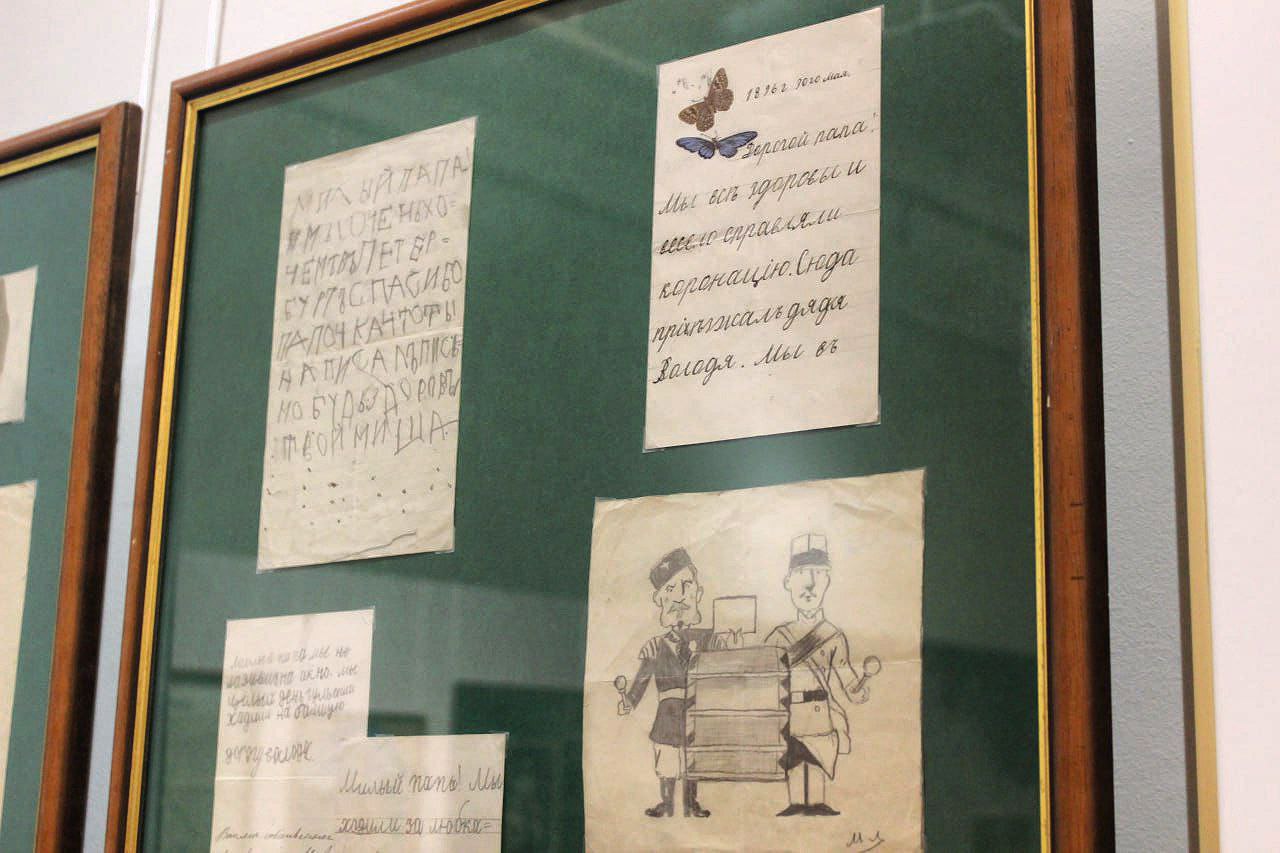 МИЛЫЙ ПАПА!
МЫ ОЧЕНЬ ХО=
ЧЕМ ТВЪ ПЕТЕР=
БУРГЪ СПАСИБО
ПАПОЧКА ЧТО ТЫ
НАПИСАЛЪ ПИСЬ=
МО БУДЬ ЗДОРОВЪ
ТВОЙ МИША.
1896 г. 10го мая.
Дорогой папа!
Мы всѣ здоровы и
весело справляли
коронацію. Сюда
пріѣзжалъ дядя
Володя. Мы въ
окно. мы
ходили на
Милый папа! Мы
ходили за
М Л